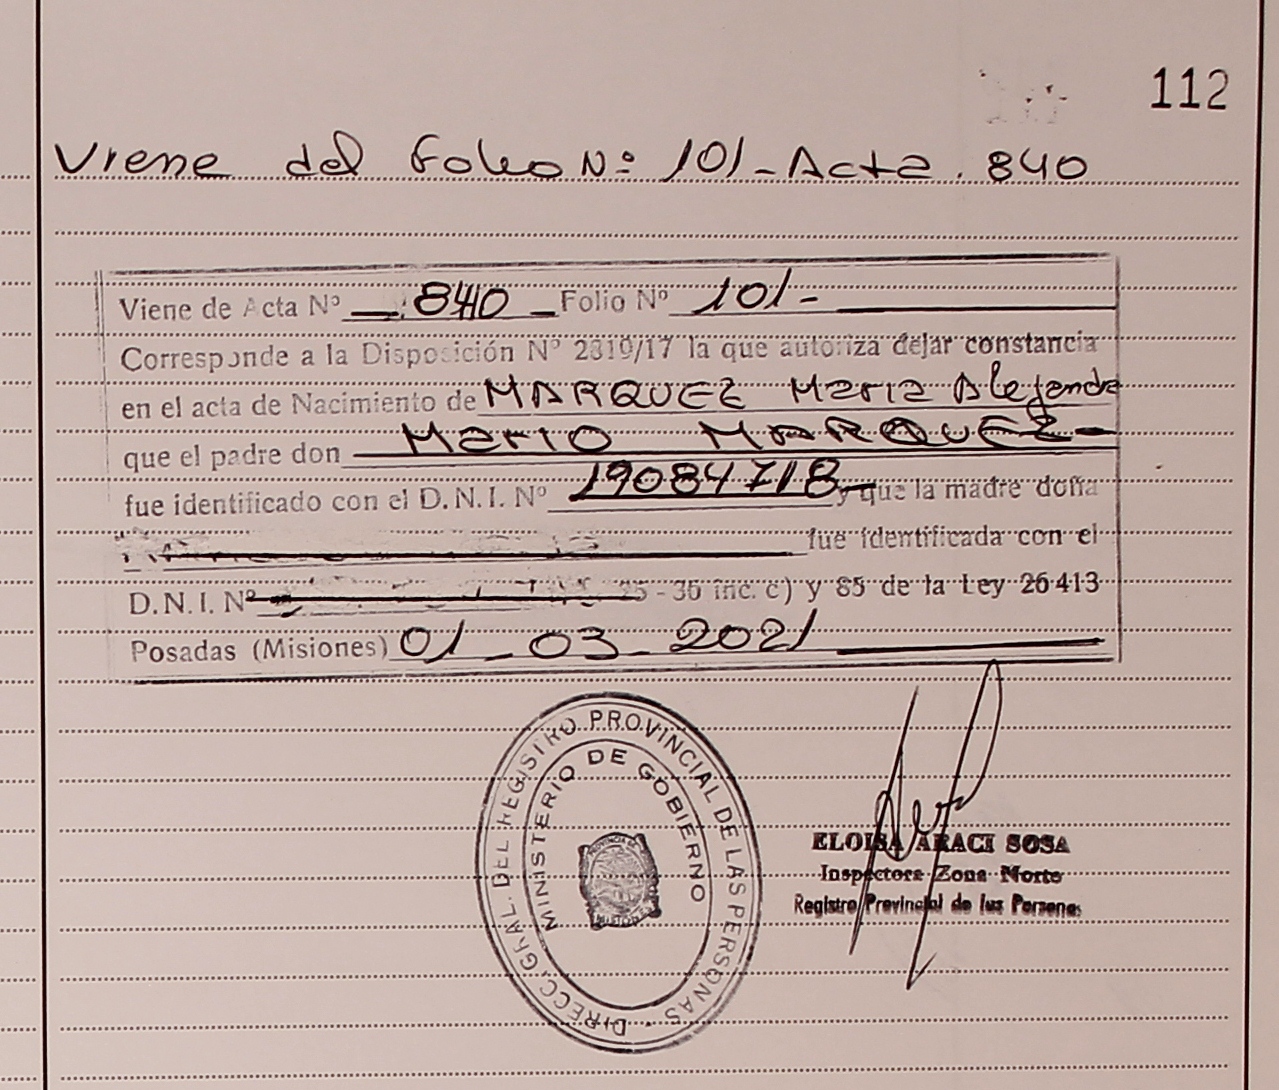 112
Viene del Folio Nº 101 - Acta. 840
Viene de Acta Nº 840 Folio Nº 101-
Corresponde a la Disposición Nº 2319/17 la que autoriza dejar constancia
en el acta de Nacimiento de MARQUEZ Maria Alejandra
que el padre don Mario MARQUEZ-
fue identificado con el D.N.I. Nº 19084718- y que la madre doña
fue identificada con el
D.N.I. Nº 25 - 36 inc. c) y 85 de la Ley 26413
Posadas (Misiones) 01 - 03 - 2021
DIRECC. GRAL. DEL REGISTRO PROVINCIAL DE LAS PERSONAS
MINISTERIO DE GOBIERNO
PROVINCIA DE
MISIONES
ELOISA ARACI SOSA
Inspectora Zona Norte
Registro Provincial de las Personas